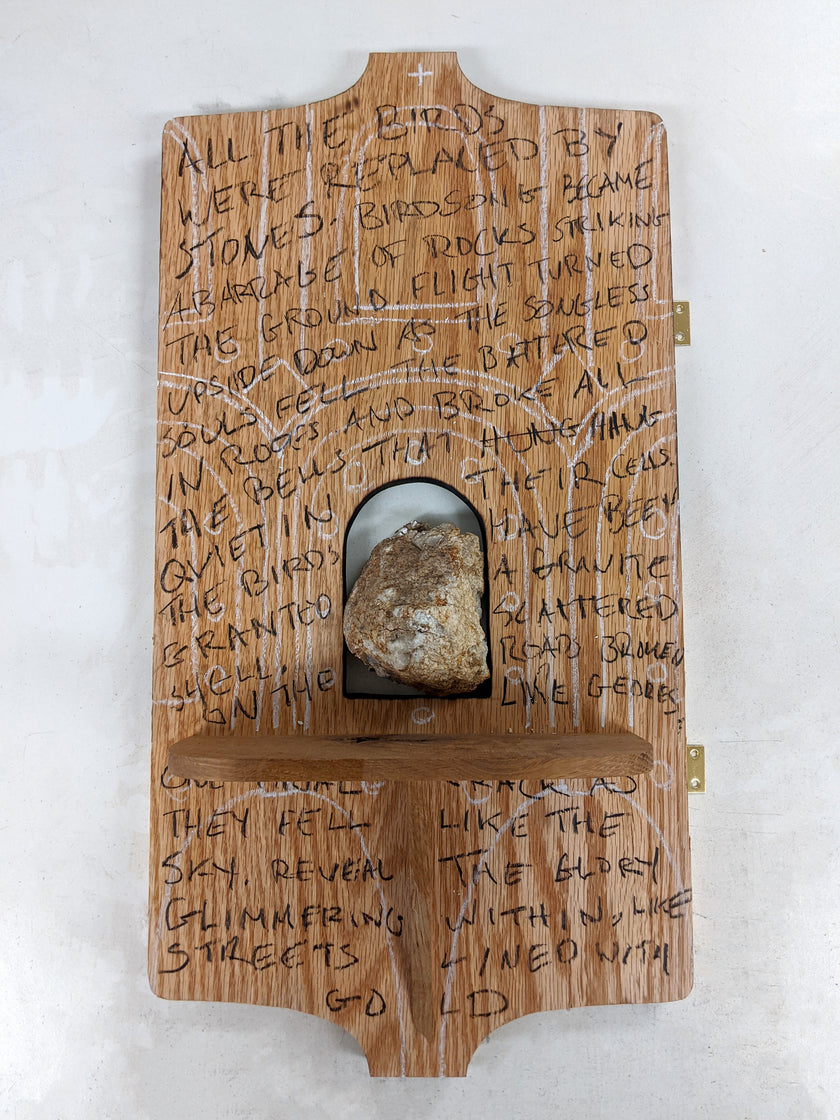 ALL THE BIRDS
WERE REPLACED BY
STONES. BIRDSONG BECAME
A BARRAGE OF ROCKS STRIKING
THE GROUND FLIGHT TURNED
UPSIDE DOWN AS THE SONGLESS
SOULS FELL. THE BATTERED
IN ROOFS AND BROKE ALL
THE BELLS THAT HUNG HANG
QUIET IN THEIR CELLS.
THE BIRDS HAVE BEEN
GRANTED A GRANITE
SHELL. SCATTERED
ON THE ROAD BROKEN
LIKE GEODES.
CRACK AS
THEY FELL LIKE THE
SKY, REVEAL THE GLORY
GLIMMERING WITHIN, LIKE
STREETS LINED WITH
GOLD